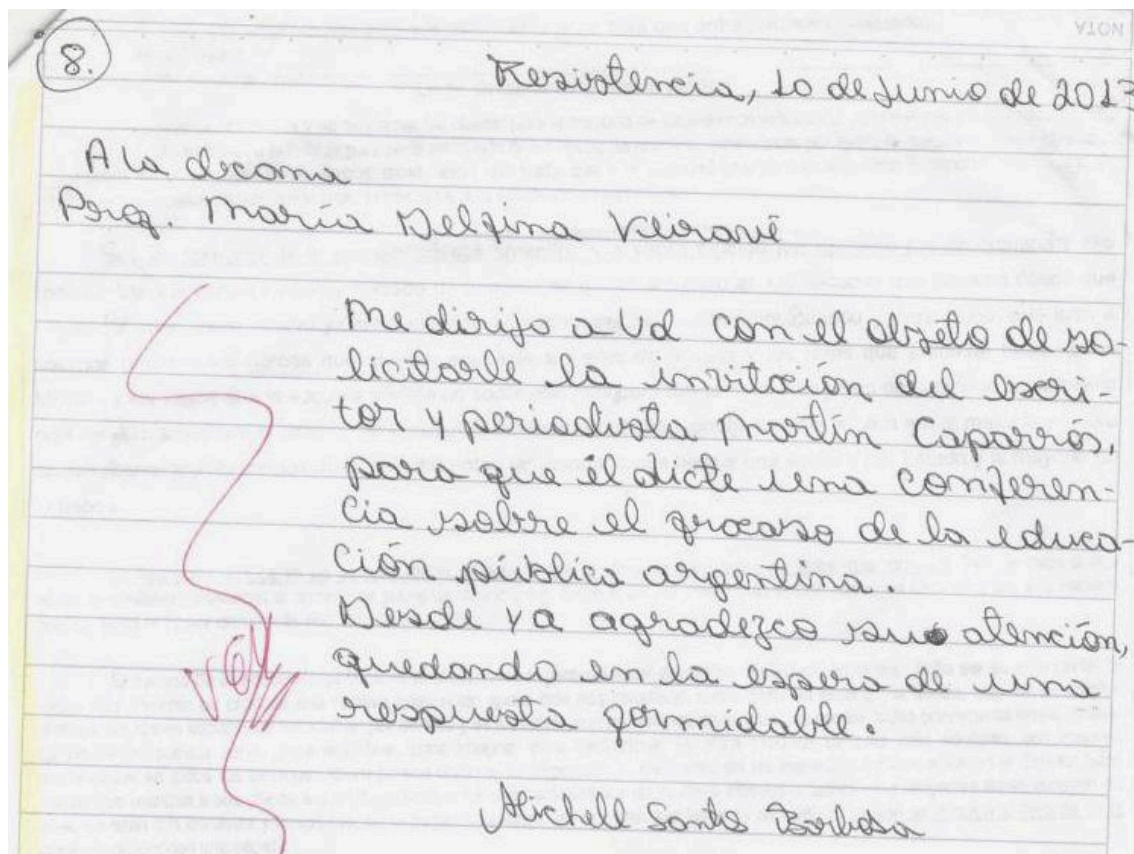 NOTA
8.
Resistencia, 10 de Junio de 2017
A la decana
Prof. María Delfina Veiravé
Me dirijo a Ud con el objeto de so-
licitarle la invitación del escri-
tor y periodista Martín Caparros,
para que él dicte una conferen-
cia sobre el fracaso de la educa-
ción pública argentina.
Desde ya agradezco su atención,
quedando en la espera de una
respuesta formidable.
Michelle Santos Barbosa